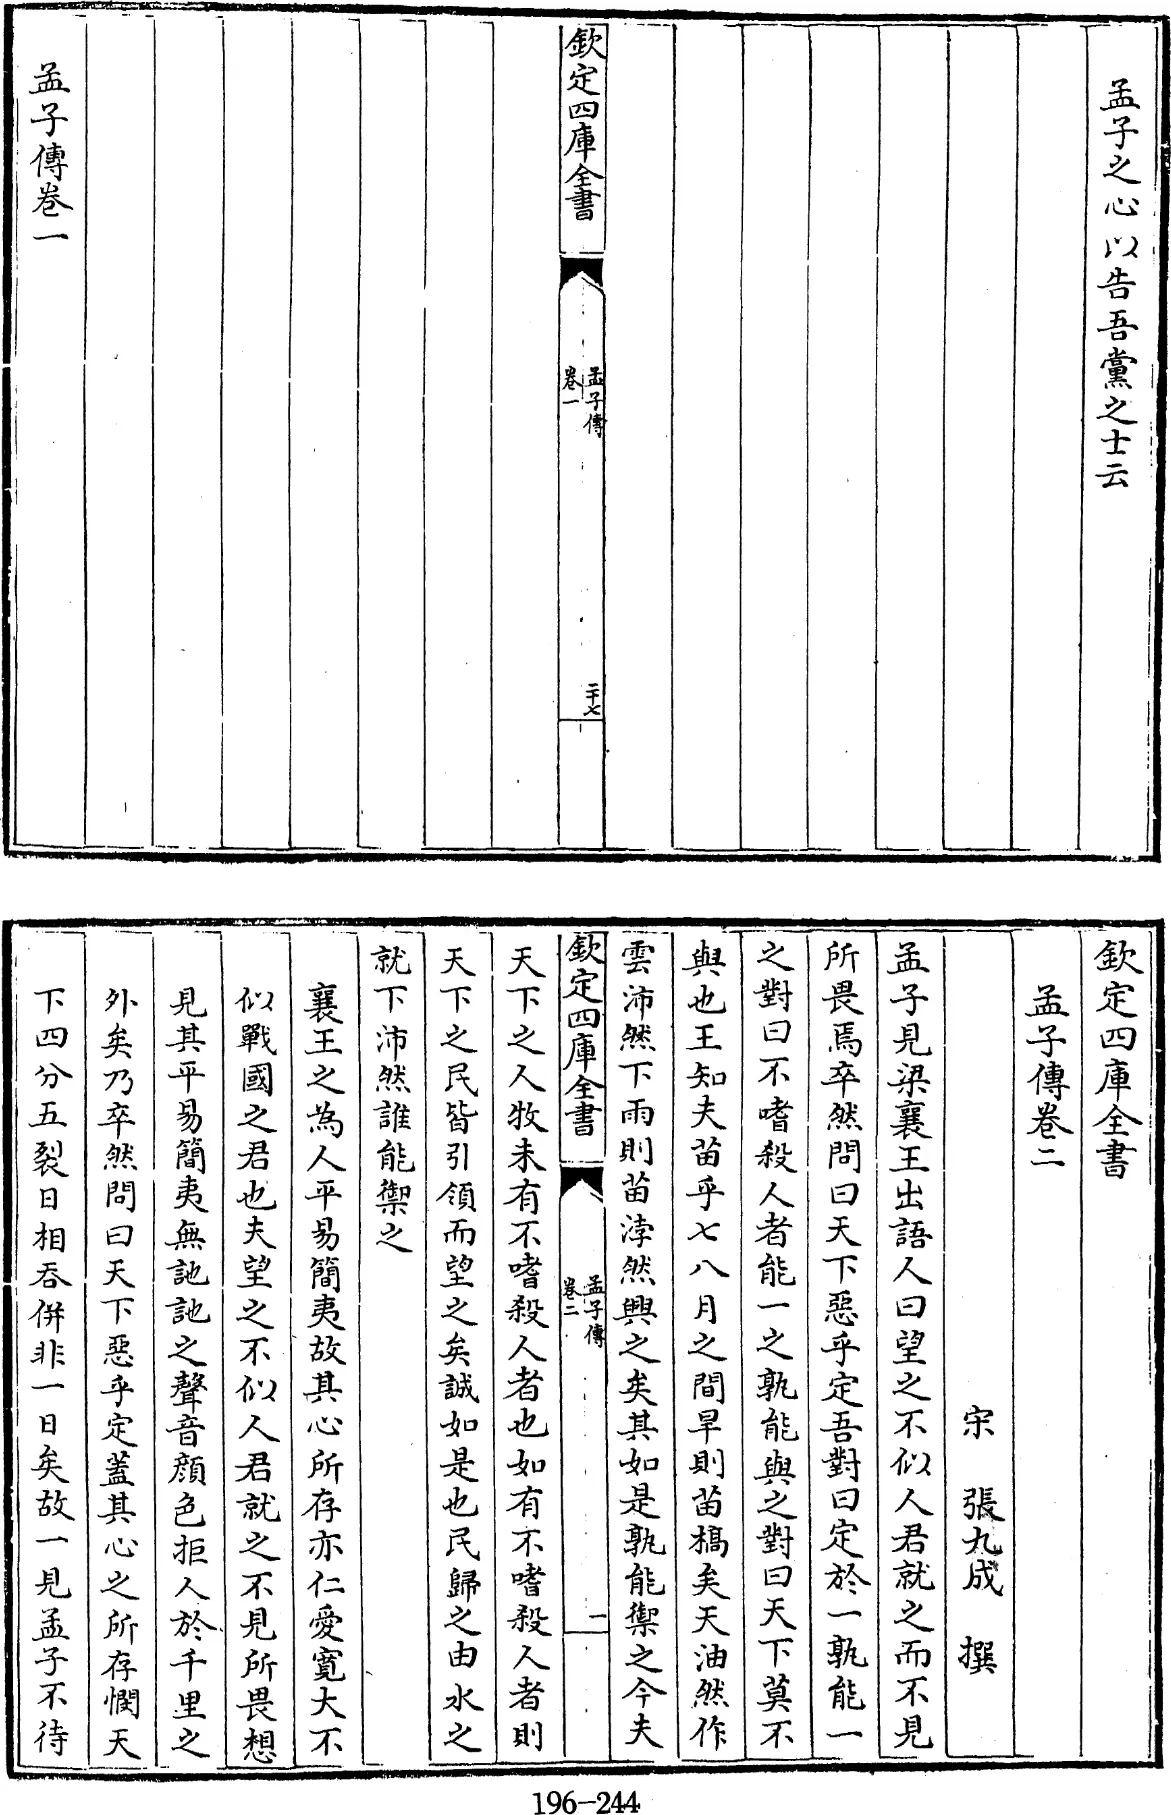 孟子之心以告吾黨之士云
欽定四庫全書
孟子傳
卷一
二十七
孟子傳卷一
欽定四庫全書
孟子傳卷二
宋 張九成 撰
孟子見梁襄王出語人曰望之不似人君就之而不見
所畏焉卒然問曰天下惡乎定吾對曰定於一孰能一
之對曰不嗜殺人者能一之孰能與之對曰天下莫不
與也王知夫苗乎七八月之間旱則苗槁矣天油然作
雲沛然下雨則苗浡然興之矣其如是孰能禦之今夫
欽定四庫全書
孟子傳
卷二
一
天下之人牧未有不嗜殺人者也如有不嗜殺人者則
天下之民皆引領而望之矣誠如是也民歸之由水之
就下沛然誰能禦之
襄王之為人平易簡夷故其心所存亦仁愛寬大不
似戰國之君也夫望之不似人君就之不見所畏想
見其平易簡夷無訑訑之聲音顏色拒人於千里之
外矣乃卒然問曰天下惡乎定蓋其心之所存憫天
下四分五裂日相吞併非一日矣故一見孟子不待
196-244